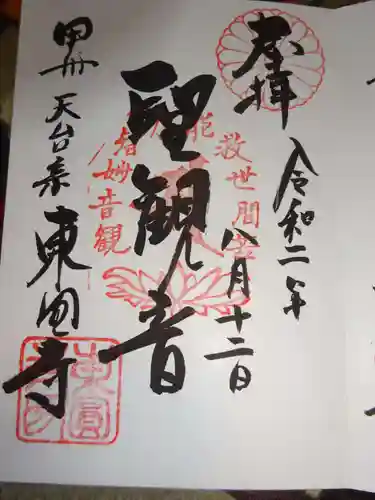 奉拝
令和二年
八月十二日
聖観音
甲州
天台宗
東圓寺
能救世間苦
観音妙智
東圓